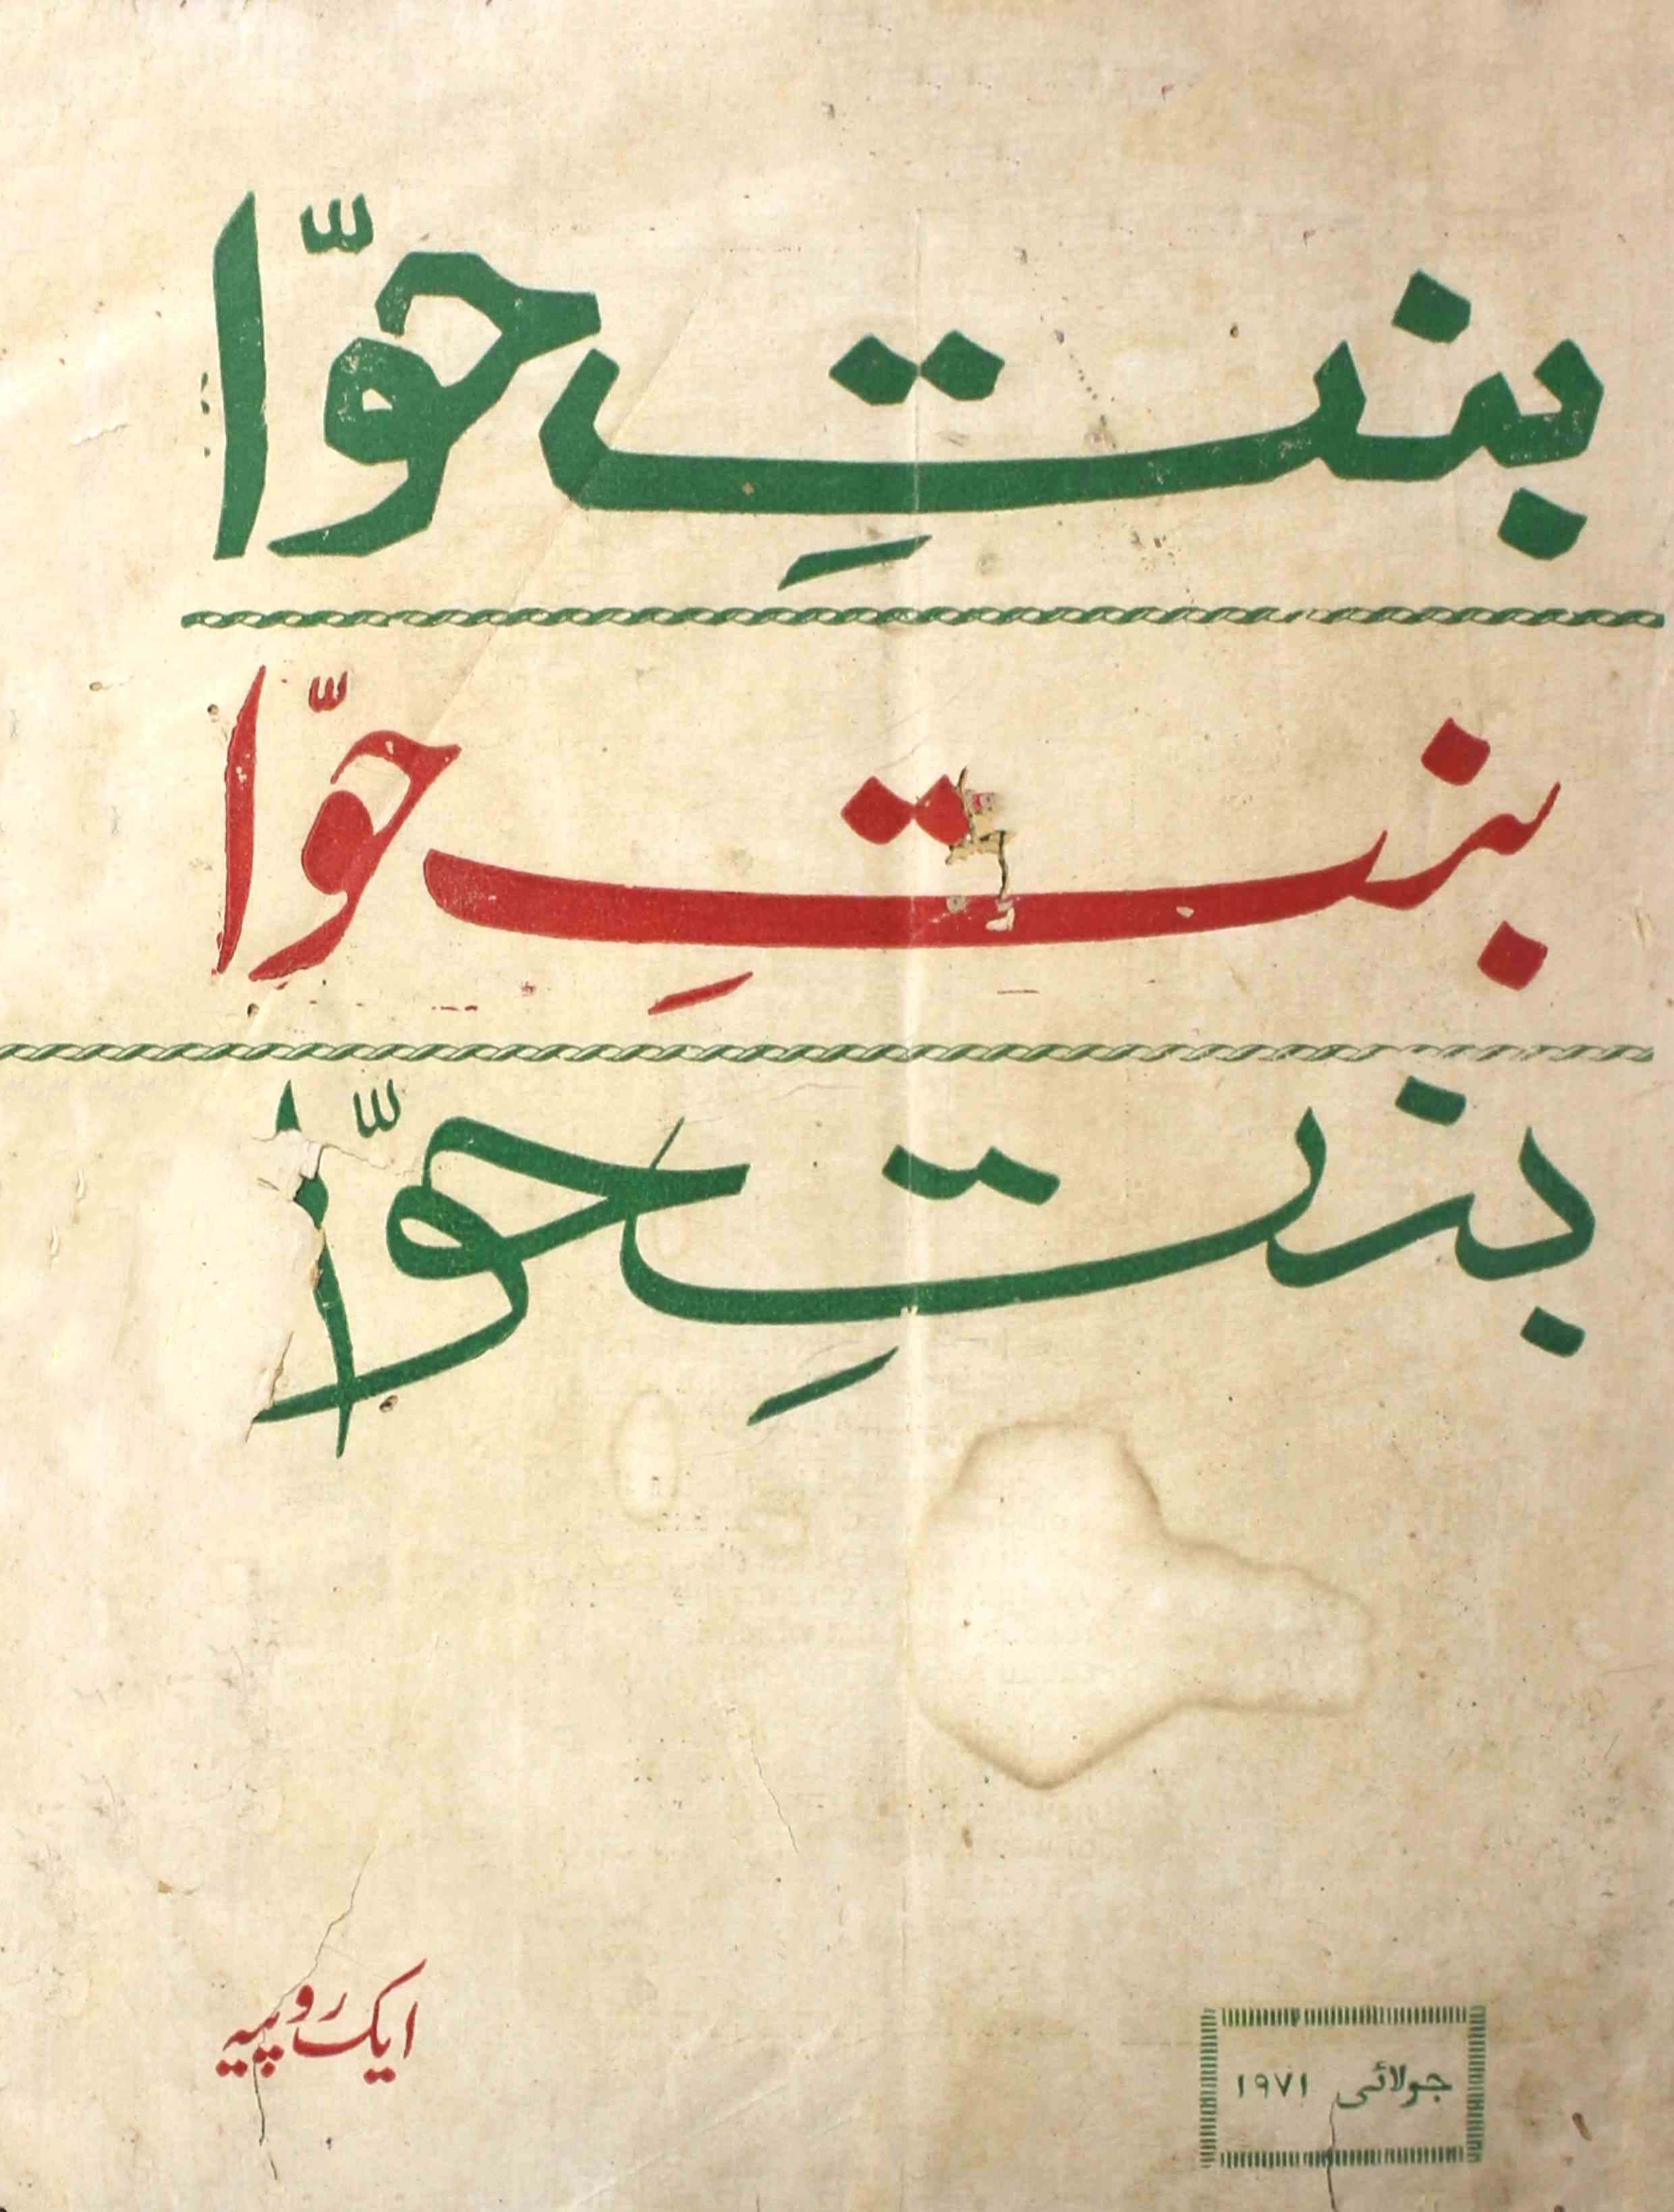 بنتِ حوّا
بنتِ حوّا
بنتِ حوّا
ایک روپیہ
جولائی ۱۹۷۱